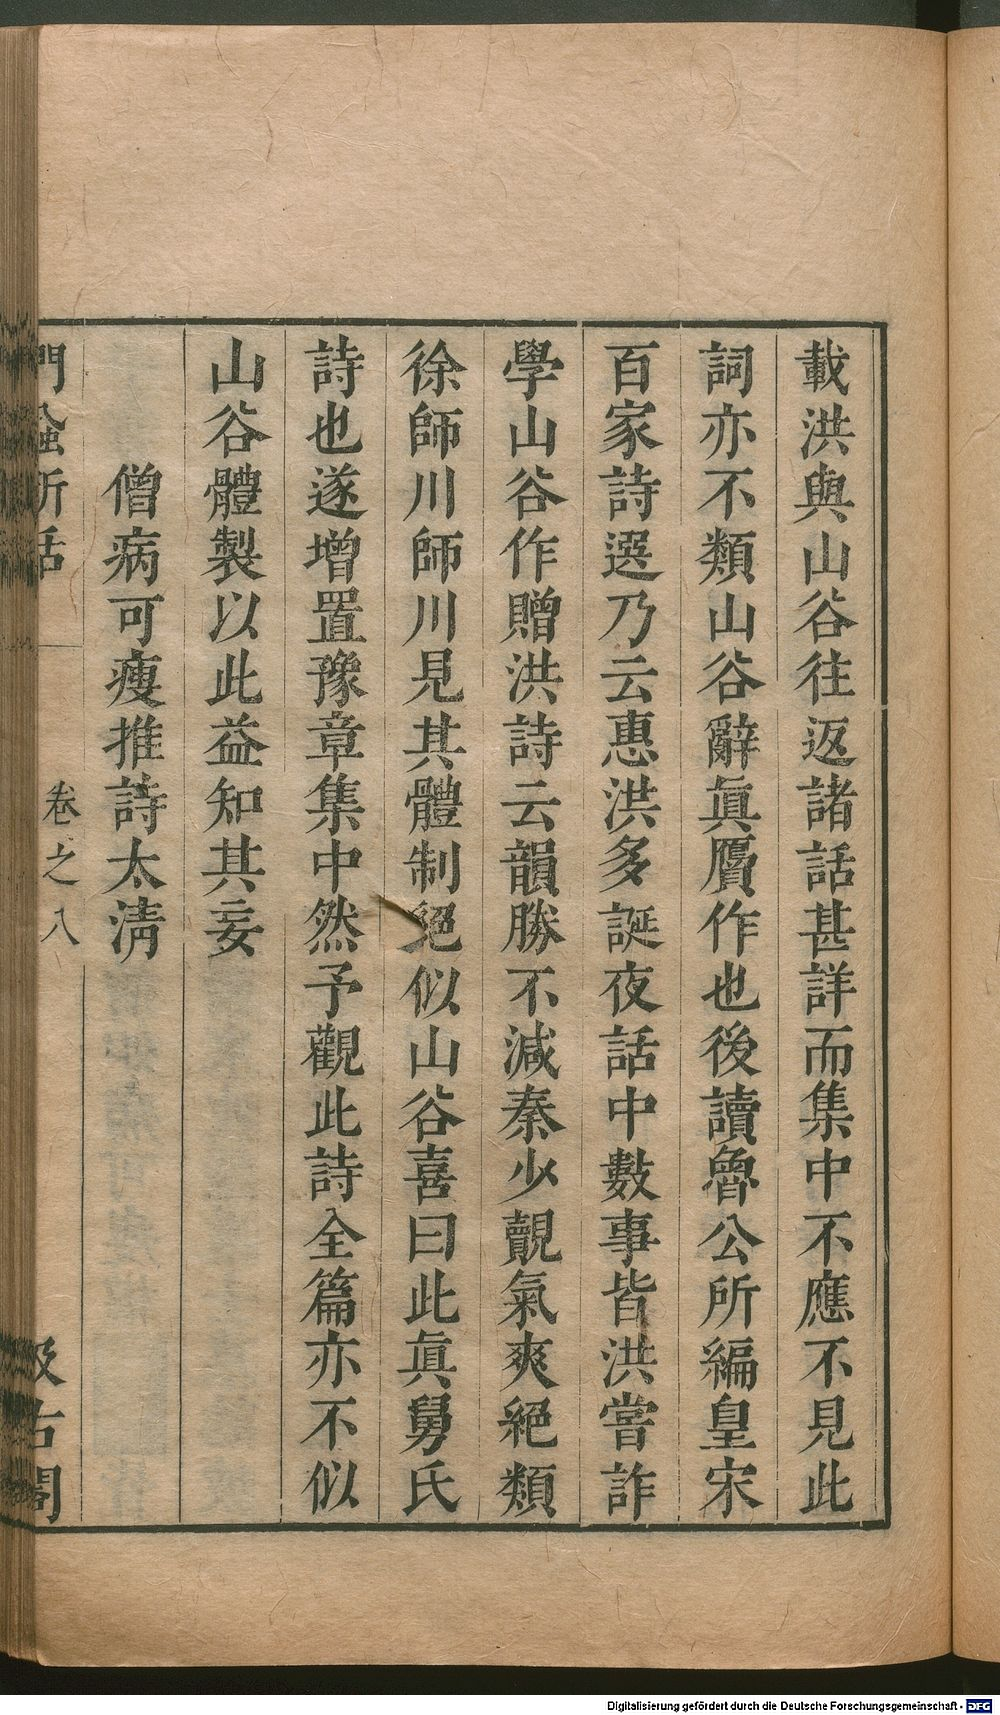 載洪與山谷往返諸話甚詳而集中不應不見此
詞亦不類山谷辭眞贋作也後讀魯公所編皇宋
百家詩選乃云惠洪多誕夜話中數事皆洪嘗詐
學山谷作贈洪詩云韻勝不減秦少覿氣爽絕類
徐師川師川見其體制絕似山谷喜曰此眞舅氏
詩也遂增置豫章集中然予觀此詩全篇亦不似
山谷體製以此益知其妄
僧病可瘦推詩太淸
門蝨新話
卷之八
汲古閣
Digitalisierung gefördert durch die Deutsche Forschungsgemeinschaft - DFG